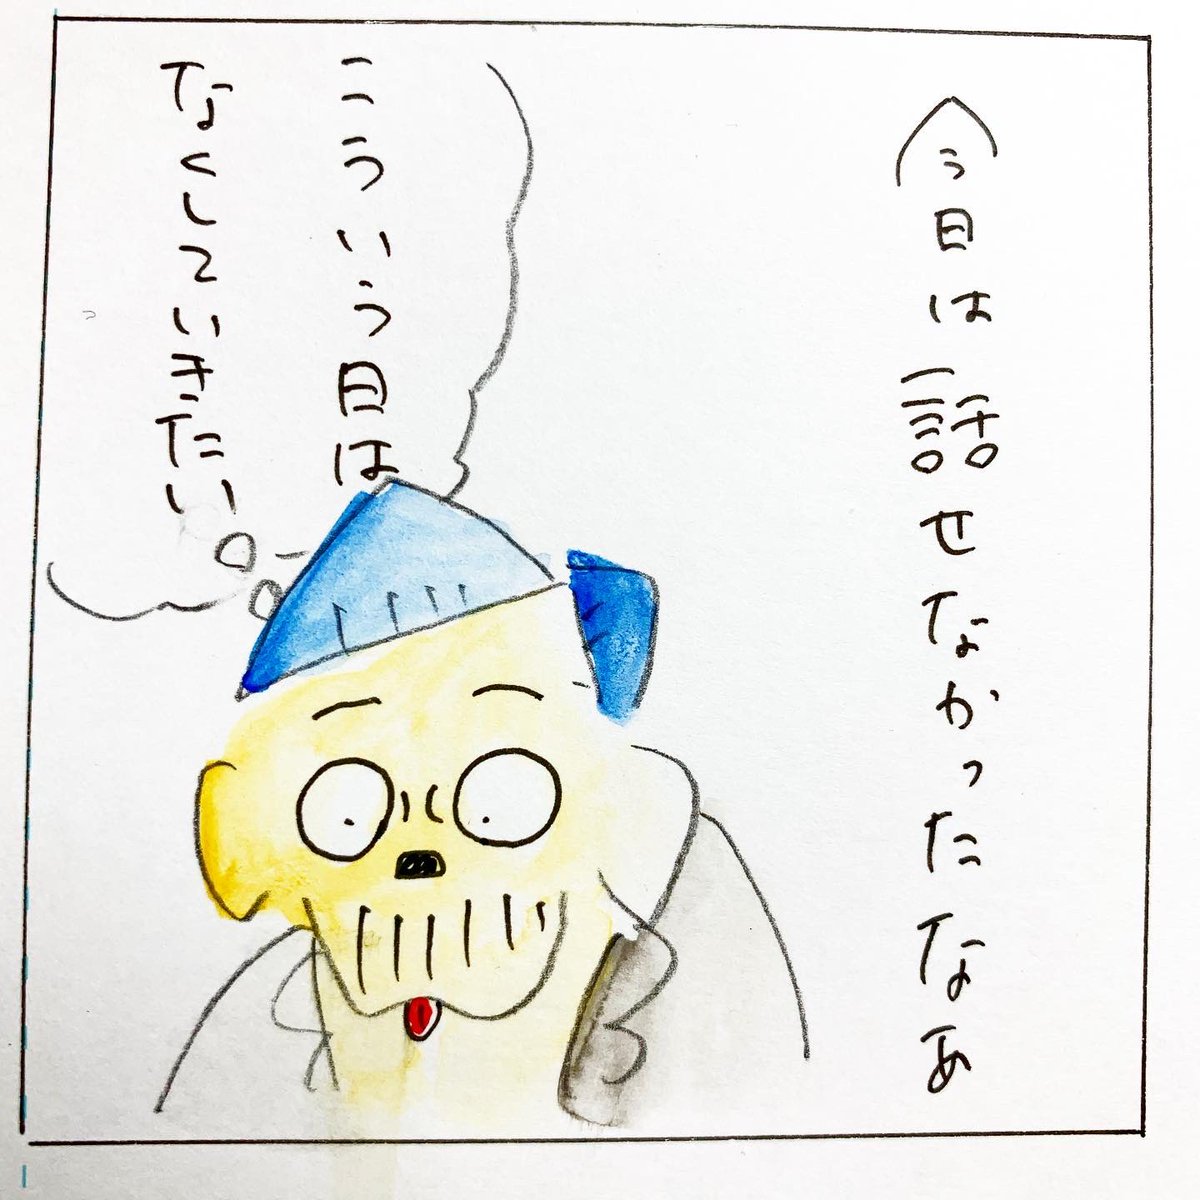 今日は話せなかったなあ
こういう日は
なくしていきたい